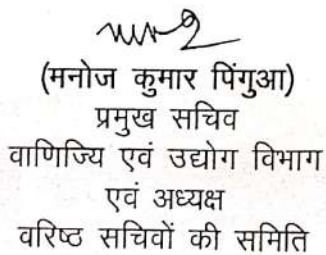 (मनोज कुमार पिंगुआ)
प्रमुख सचिव
वाणिज्यि एवं उद्योग विभाग
एवं अध्यक्ष
वरिष्ठ सचिवों की समिति